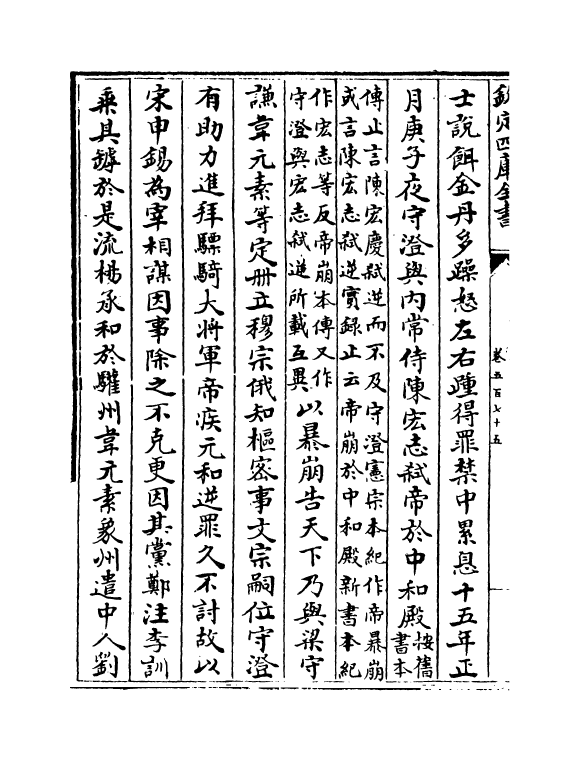 欽定四庫全書
卷五百七十五
士說餌金丹多躁怒左右踵得罪禁中累息十五年正
月庚子夜守澄與內常侍陳宏志弑帝於中和殿按舊書本
傳止言陳宏慶弑逆而不及守澄憲宗本紀作帝暴崩
或言陳宏志弑逆實録止云帝崩於中和殿新書本紀
作宏志等反帝崩本傳又作
守澄與宏志弑逆所載互異以暴崩告天下乃與梁守
謙韋元素等定册立穆宗俄知樞密事文宗嗣位守澄
有助力進拜驃騎大將軍帝疾元和逆罪久不討故以
宋申錫為宰相謀因事除之不克更因其黨鄭注李訓
乘其罅於是流楊承和於驩州韋元素象州遣中人劉